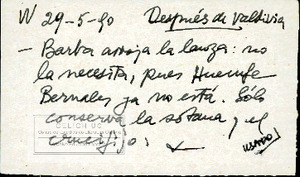 W 29-5-90 Después de Valdivia
- Barba arroja la lanza: no
la necesita, pues Huenufe
Bernales ya no está. Sólo
conserva la sotana y el
crucifijo.
USADO
CELICH UC